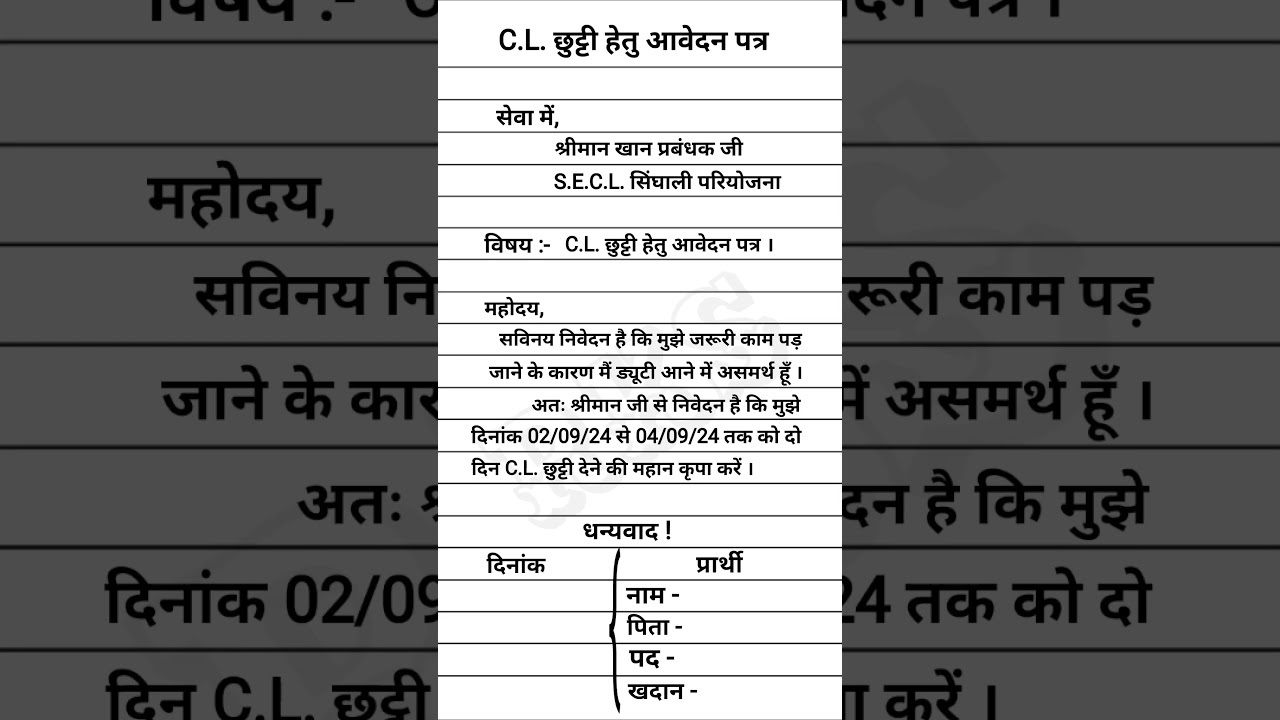 C.L. छुट्टी हेतु आवेदन पत्र
सेवा में,
श्रीमान खान प्रबंधक जी
S.E.C.L. सिंघाली परियोजना
विषय :- C.L. छुट्टी हेतु आवेदन पत्र ।
महोदय,
सविनय निवेदन है कि मुझे जरूरी काम पड़
जाने के कारण मैं ड्यूटी आने में असमर्थ हूँ ।
अतः श्रीमान जी से निवेदन है कि मुझे
दिनांक 02/09/24 से 04/09/24 तक को दो
दिन C.L. छुट्टी देने की महान कृपा करें ।
धन्यवाद !
दिनांक
प्रार्थी
नाम -
पिता -
पद -
खदान -